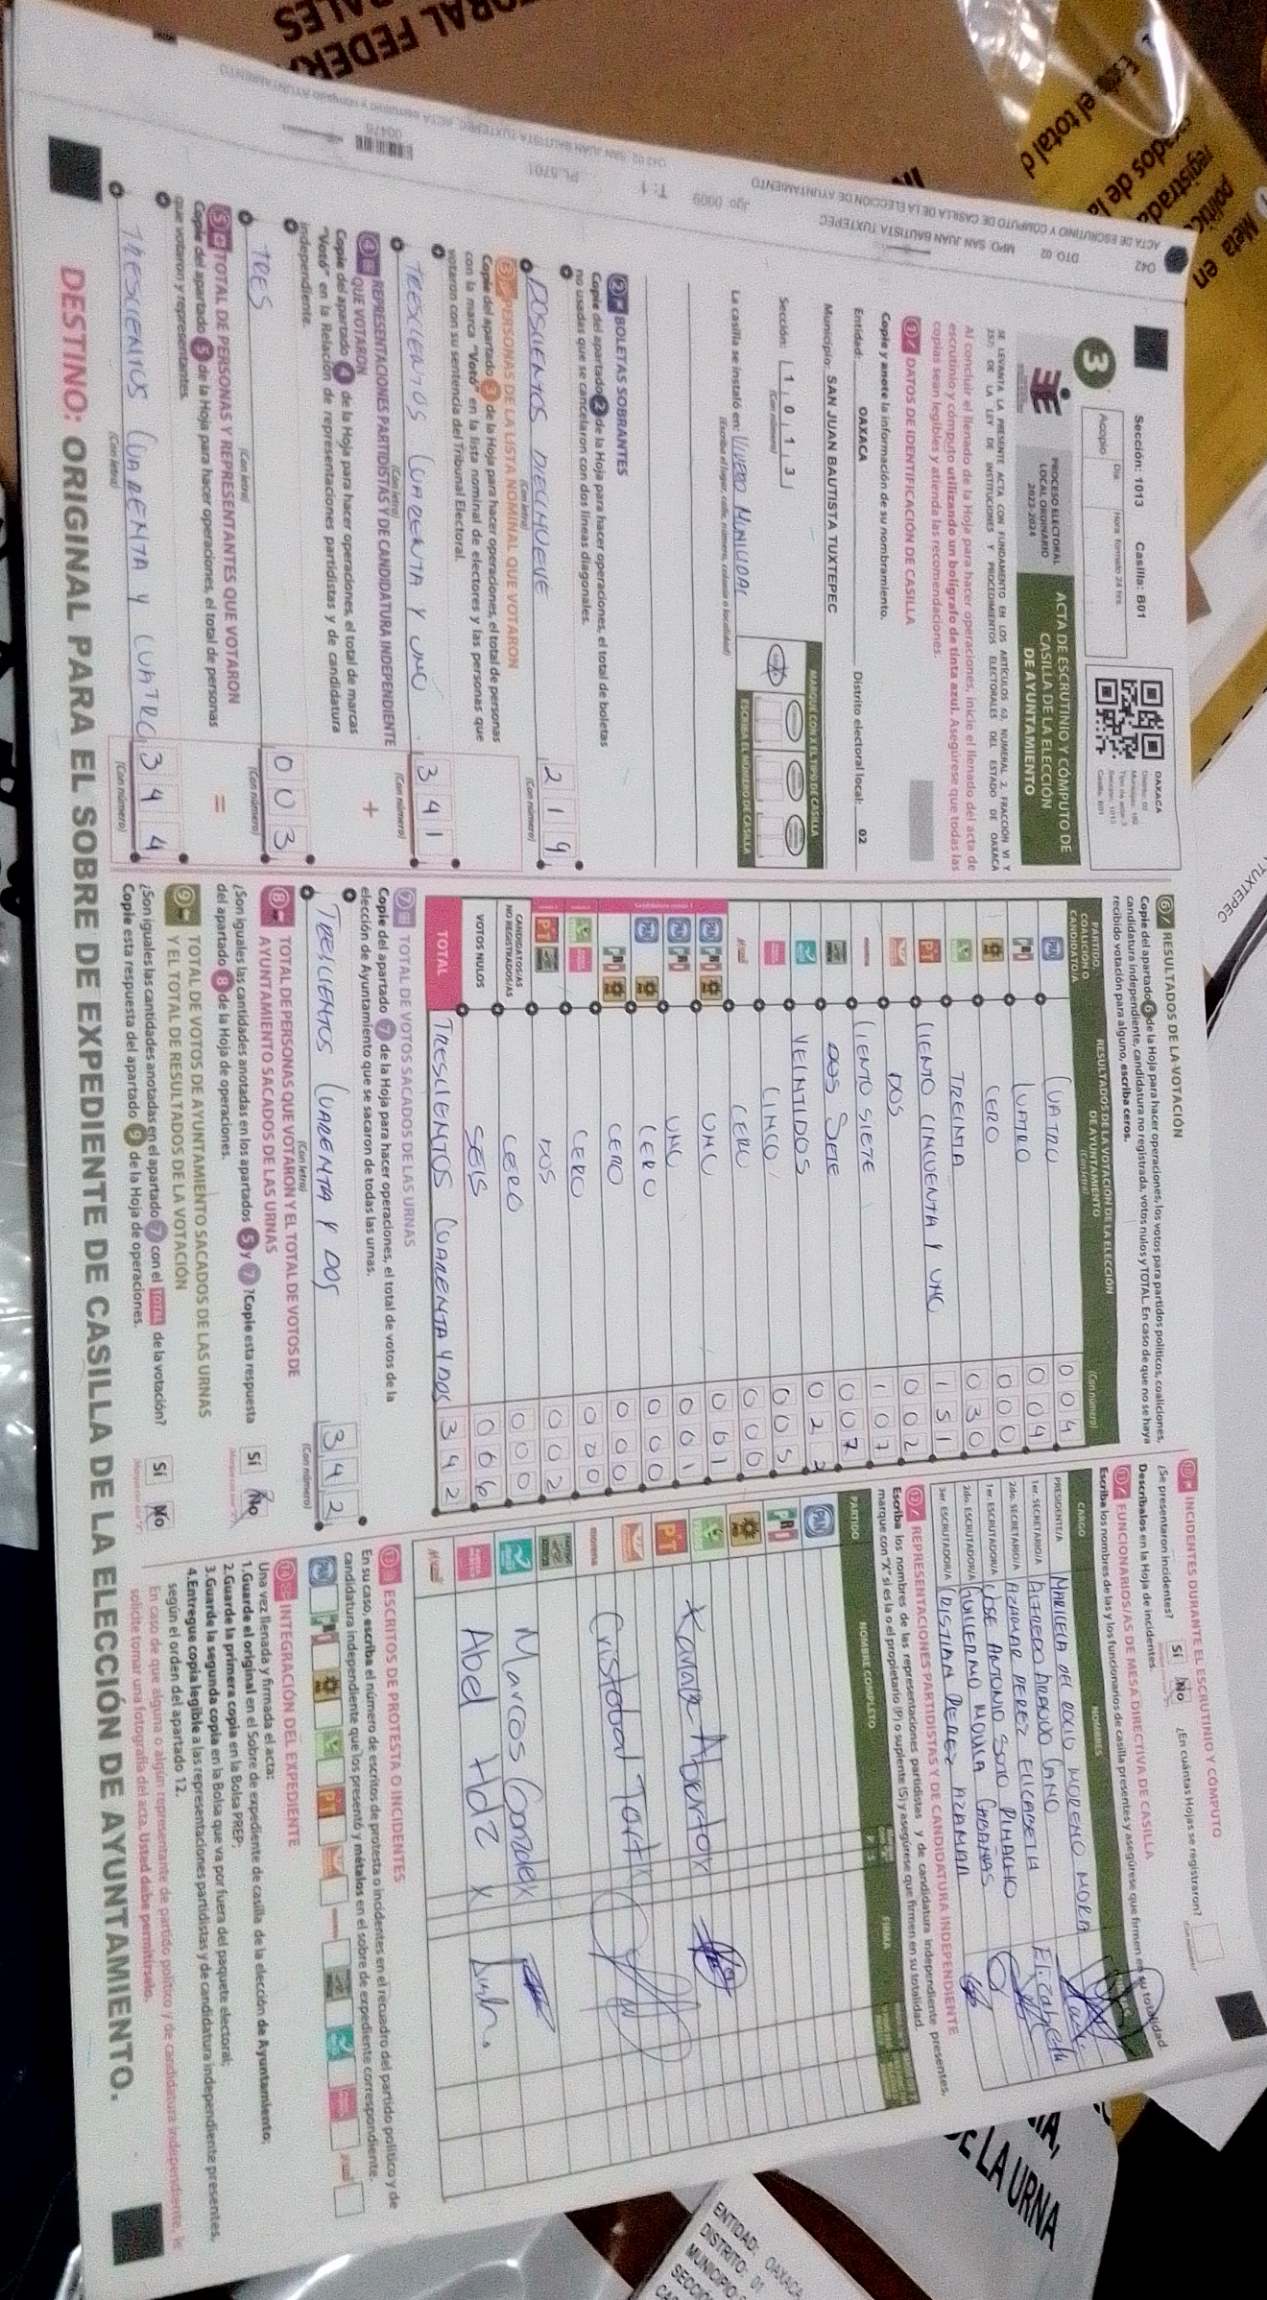 Sección: 1013 Casilla: B01
OAXACA
3
Acopio
Día
Hora formato 24 hrs
PROCESO ELECTORAL
LOCAL ORDINARIO
2023-2024
ACTA DE ESCRUTINIO Y CÓMPUTO DE
CASILLA DE LA ELECCIÓN
DE AYUNTAMIENTO
Al concluir el llenado de la Hoja para hacer operaciones, inicie el llenado del acta de
escrutinio y cómputo utilizando un bolígrafo de tinta azul. Asegúrese que todas las
copias sean legibles y atienda las recomendaciones.
1 DATOS DE IDENTIFICACIÓN DE CASILLA
Copie y anote la información de su nombramiento.
Entidad: OAXACA Distrito electoral local: 02
Municipio: SAN JUAN BAUTISTA TUXTEPEC
Sección: 1 0 1 3
(Con número)
MARQUE CON X EL TIPO DE CASILLA
ESCRIBA EL NÚMERO DE CASILLA
La casilla se instaló en:
(Escriba el lugar, calle, número, colonia o localidad)
2 BOLETAS SOBRANTES
Copie del apartado 2 de la Hoja para hacer operaciones, el total de boletas
no usadas que se cancelaron con dos líneas diagonales.
DOSCIENTOS DIECINUEVE 2 1 9
(Con letra) (Con número)
3 PERSONAS DE LA LISTA NOMINAL QUE VOTARON
Copie del apartado 3 de la Hoja para hacer operaciones, el total de personas
con la marca "Votó" en la lista nominal de electores y las personas que
votaron con su sentencia del Tribunal Electoral.
TRESCIENTOS CUARENTA Y UNO 3 4 1
(Con letra) (Con número)
4 REPRESENTACIONES PARTIDISTAS Y DE CANDIDATURA INDEPENDIENTE
QUE VOTARON
Copie del apartado 4 de la Hoja para hacer operaciones, el total de marcas
"Votó" en la Relación de representaciones partidistas y de candidatura
independiente.
TRES 0 0 3
(Con letra) (Con número)
5 TOTAL DE PERSONAS Y REPRESENTANTES QUE VOTARON
Copie del apartado 5 de la Hoja para hacer operaciones, el total de personas
que votaron y representantes.
TRESCIENTOS CUARENTA Y CUATRO 3 4 4
(Con letra) (Con número)
6 RESULTADOS DE LA VOTACIÓN
Copie del apartado 6 de la Hoja para hacer operaciones, los votos para partidos políticos, coaliciones,
candidatura independiente, candidatura no registrada, votos nulos y TOTAL. En caso de que no se haya
recibido votación para alguno, escriba ceros.
PARTIDO, COALICIÓN O CANDIDATO/A
RESULTADOS DE LA VOTACIÓN DE LA ELECCIÓN
DE AYUNTAMIENTO
(Con letra) (Con número)
PAN CUATRO 0 0 4
PRI CUATRO 0 0 4
CERO 0 0 0
TREINTA 0 3 0
PT CIENTO CINCUENTA Y UNO 1 5 1
DOS 0 0 2
morena CIENTO SIETE 1 0 7
SIETE 0 0 7
VEINTIDOS 0 2 2
CINCO 0 0 5
CERO 0 0 0
UNO 0 0 1
PAN PRI UNO 0 0 1
PAN CERO 0 0 0
PRI CERO 0 0 0
CERO 0 0 0
PT DOS 0 0 2
CANDIDATOS/AS NO REGISTRADOS/AS CERO 0 0 0
VOTOS NULOS SEIS 0 0 6
TOTAL TRESCIENTOS CUARENTA Y DOS 3 4 2
7 TOTAL DE VOTOS SACADOS DE LAS URNAS
Copie del apartado 7 de la Hoja para hacer operaciones, el total de votos de la
elección de Ayuntamiento que se sacaron de todas las urnas.
TRESCIENTOS CUARENTA Y DOS 3 4 2
(Con letra) (Con número)
8 TOTAL DE PERSONAS QUE VOTARON Y EL TOTAL DE VOTOS DE
AYUNTAMIENTO SACADOS DE LAS URNAS
¿Son iguales las cantidades anotadas en los apartados 5 y 7? Copie esta respuesta
del apartado 8 de la Hoja de operaciones. Sí No
9 TOTAL DE VOTOS DE AYUNTAMIENTO SACADOS DE LAS URNAS
Y EL TOTAL DE RESULTADOS DE LA VOTACIÓN
¿Son iguales las cantidades anotadas en el apartado 7 con el TOTAL de la votación?
Copie esta respuesta del apartado 9 de la Hoja de operaciones. Sí No
10 INCIDENTES DURANTE EL ESCRUTINIO Y CÓMPUTO
¿Se presentaron incidentes? Sí No ¿En cuántas Hojas se registraron?
Descríbalos en la Hoja de incidentes.
11 FUNCIONARIOS/AS DE MESA DIRECTIVA DE CASILLA
Escriba los nombres de las y los funcionarios de casilla presentes y asegúrese que firmen en su totalidad
CARGO NOMBRES
PRESIDENTE/A MARICELA DEL ROCIO MORENO MORA
1er. SECRETARIO/A ALFREDO CANO
2do. SECRETARIO/A AZAMAR PEREZ ELIZABETH Elizabeth
1er. ESCRUTADOR/A JOSE ANTONIO SOTO
2do. ESCRUTADOR/A GUILLERMO CABAÑAS
3er. ESCRUTADOR/A CRISTIAN PEREZ AZAMAR
12 REPRESENTACIONES PARTIDISTAS Y DE CANDIDATURA INDEPENDIENTE
Escriba los nombres de las representaciones partidistas y de candidatura independiente presentes,
marque con "X" si es la o el propietario (P) o suplente (S) y asegúrese que firmen en su totalidad.
PARTIDO NOMBRE COMPLETO P S FIRMA
PAN
PRI
PT
Cristobal
morena
Marcos Gonzalez
Abel Hdz X
13 ESCRITOS DE PROTESTA O INCIDENTES
En su caso, escriba el número de escritos de protesta o incidentes en el recuadro del partido político y de
candidatura independiente que los presentó y métalos en el sobre de expediente correspondiente.
14 INTEGRACIÓN DEL EXPEDIENTE
Una vez llenada y firmada el acta:
1.Guarde el original en el Sobre de expediente de casilla de la elección de Ayuntamiento;
2.Guarde la primera copia en la Bolsa PREP;
3.Guarde la segunda copia en la Bolsa que va por fuera del paquete electoral;
4.Entregue copia legible a las representaciones partidistas y de candidatura independiente presentes,
según el orden del apartado 12.
En caso de que alguna o algún representante de partido político y de candidatura independiente, le
solicite tomar una fotografía del acta. Usted debe permitírselo.
DESTINO: ORIGINAL PARA EL SOBRE DE EXPEDIENTE DE CASILLA DE LA ELECCIÓN DE AYUNTAMIENTO.
ACTA DE ESCRUTINIO Y CÓMPUTO DE CASILLA DE LA ELECCIÓN DE AYUNTAMIENTO
DTO 02 MPO. SAN JUAN BAUTISTA TUXTEPEC
TUXTEPEC
DE LA URNA
ENTIDAD: OAXACA
DISTRITO: 01
MUNICIPIO: